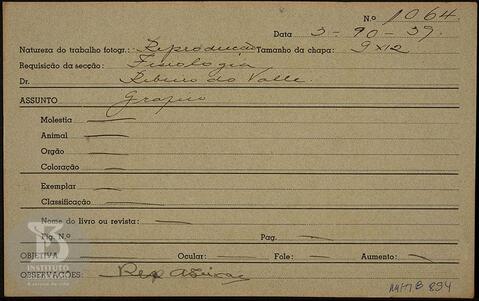 N.o 1064.
Data 3-90-39.
Natureza do trabalho fotogr.: Reprodução Tamanho da chapa: 9x12
Requisição da secção: Fisiologia
Dr. Ribeiro do Valle.
ASSUNTO Grafico
Molestia
Animal
Orgão
Coloração
Exemplar
Classificação
Nome do livro ou revista:
Fig. N.o Pag.
OBJETIVA Ocular: Fole: Aumento:
OBSERVAÇÕES: Rep
INSTITUTO